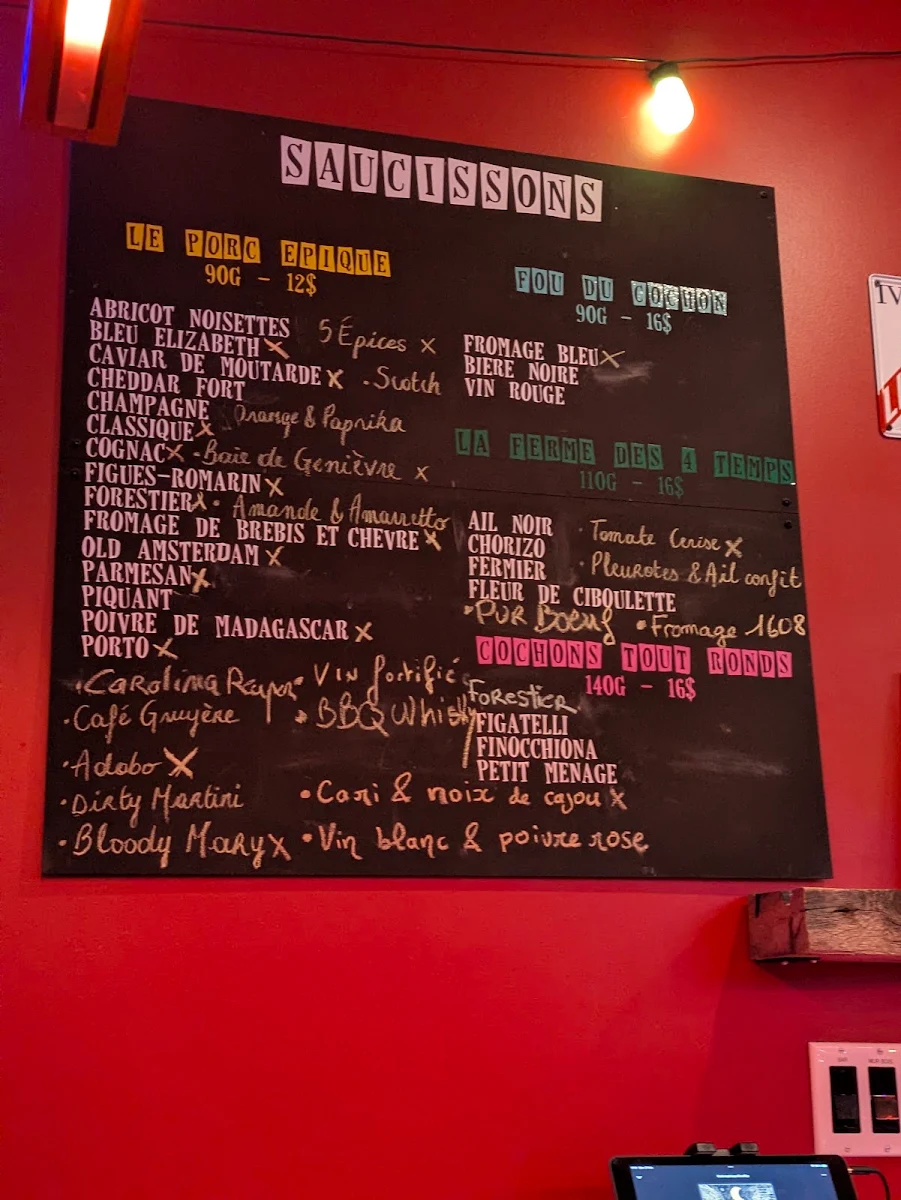 SAUCISSONS
LE PORC EPIQUE
90G - 12$
ABRICOT NOISETTES
5 Épices x
BLEU ELIZABETH x
CAVIAR DE MOUTARDE x
· Scotch
CHEDDAR FORT
CHAMPAGNE
Orange & Paprika
CLASSIQUE x
COGNAC x
· Baie de Genièvre x
FIGUES-ROMARIN x
FORESTIER x
· Amande & Amaretto
FROMAGE DE BREBIS ET CHEVRE x
OLD AMSTERDAM x
PARMESAN x
PIQUANT
POIVRE DE MADAGASCAR x
PORTO x
· Carolina Reaper
· Vin fortifié
· Café Gruyère
· BBQ Whisky
· Adobo x
· Dirty Martini
· Cari & noix de cajou x
· Bloody Mary x
· Vin blanc & poivre rose
FOU DU COCHON
90G - 16$
FROMAGE BLEU x
BIERE NOIRE
VIN ROUGE
LA FERME DES 4 TEMPS
110G - 16$
AIL NOIR
· Tomate Cerise x
CHORIZO
· Pleurotes & Ail confit
FERMIER
FLEUR DE CIBOULETTE
· PUR Boeuf
· Fromage 1608
COCHONS TOUT RONDS
140G - 16$
Forestier
FIGATELLI
FINOCCHIONA
PETIT MENAGE
IV